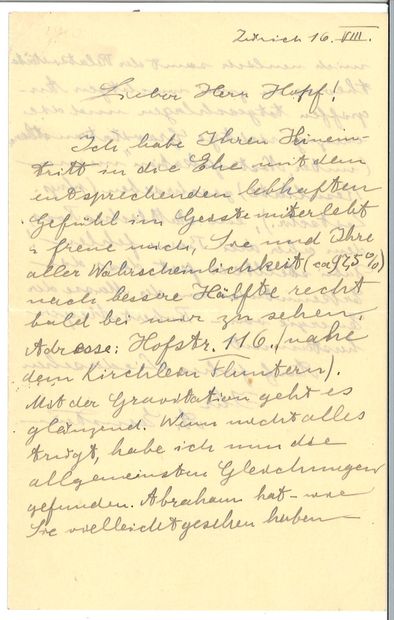 Zürich 16. VIII.
Lieber Herr Hopf!
Ich habe Ihren Hinein-
tritt in die Ehe mit dem
entsprechenden lebhaften
Gefühl im Geiste miterlebt
u freue mich, Sie und Ihre
aller Wahrscheinlichkeit (ca 97,5%)
nach bessere Hälfte recht
bald bei mir zu sehen.
Adresse: Hofstr. 116. (nahe
dem Kirchlein Fluntern).
Mit der Gravitation geht es
glänzend. Wenn nicht alles
trügt, habe ich nun die
allgemeinsten Gleichungen
gefunden. Abraham hat – wie
Sie vielleicht gesehen haben